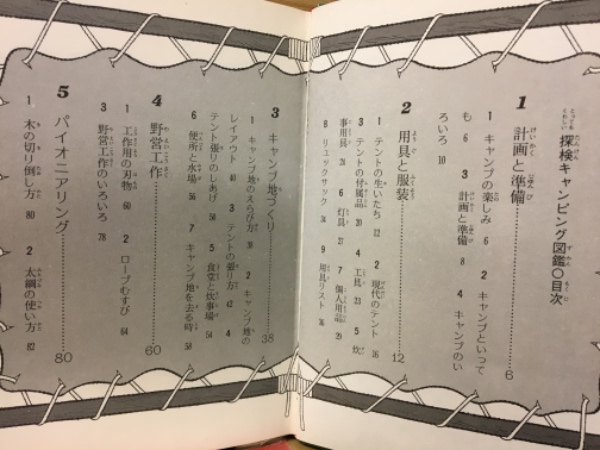 とってもくわしい 探検キャンピング図鑑〇目次
1 計画と準備……………6
1 キャンプの楽しみ 6 2 キャンプといって
も 6 3 計画と準備 8 4 キャンプのい
ろいろ 10
2 用具と服装……………12
1 テントの生いたち 12 2 現代のテント 16
3 テントの付属品 20 4 工具 23 5 炊
事用具 24 6 灯具 27 7 個人用品 29
8 リュックサック 34 9 用具リスト 36
3 キャンプ地づくり……………38
1 キャンプ地のえらび方 38 2 キャンプ地の
レイアウト 40 3 テントの張り方 42 4
テント張りのしあげ 50 5 食堂と炊事場 54
6 便所と水場 56 7 キャンプ地を去る時 58
4 野営工作……………60
1 工作用の刃物 60 2 ロープむすび 64
3 野営工作のいろいろ 78
5 パイオニアリング……………80
1 木の切り倒し方 80 2 太綱の使い方 82